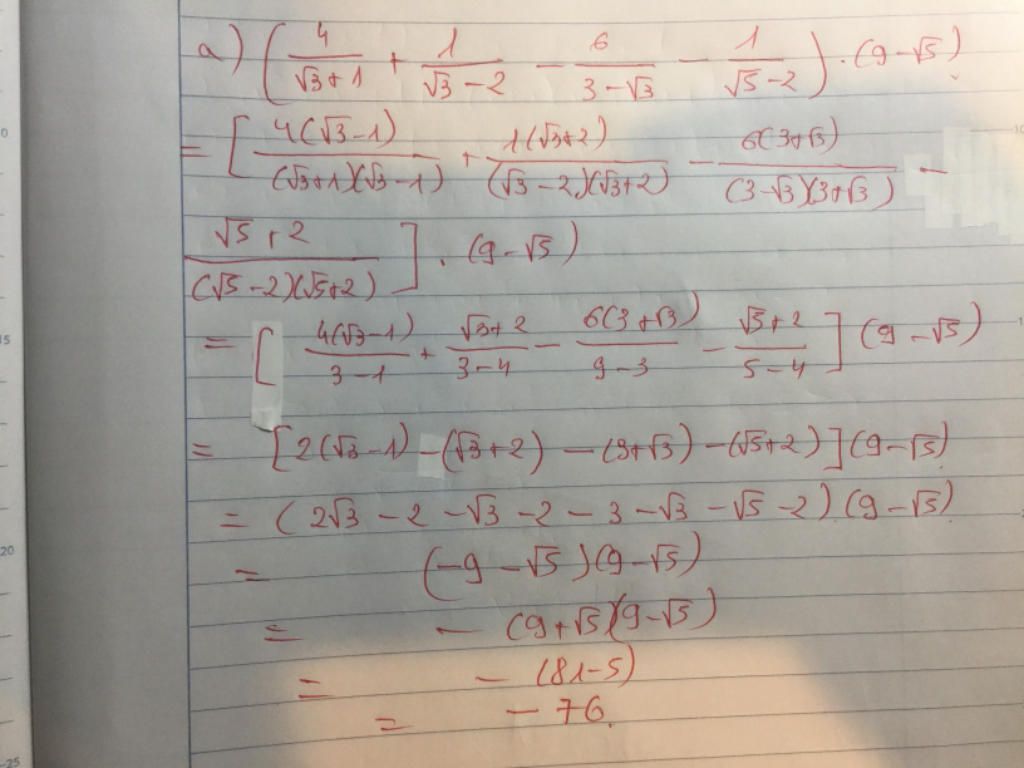 a) (4/(√3+1) + 1/(√3-2) - 6/(3-√3) - 1/(√5-2)) . (9-√5)
= [4(√3-1)/((√3+1)(√3-1)) + 1(√3+2)/((√3-2)(√3+2)) - 6(3+√3)/((3-√3)(3+√3)) -
(√5+2)/((√5-2)(√5+2))] . (9-√5)
= [4(√3-1)/(3-1) + (√3+2)/(3-4) - 6(3+√3)/(9-3) - (√5+2)/(5-4)] (9-√5)
= [2(√3-1) - (√3+2) - (3+√3) - (√5+2)] (9-√5)
= (2√3 - 2 - √3 - 2 - 3 - √3 - √5 - 2) (9-√5)
= (-9-√5)(9-√5)
= - (9+√5)(9-√5)
= - (81-5)
= - 76.